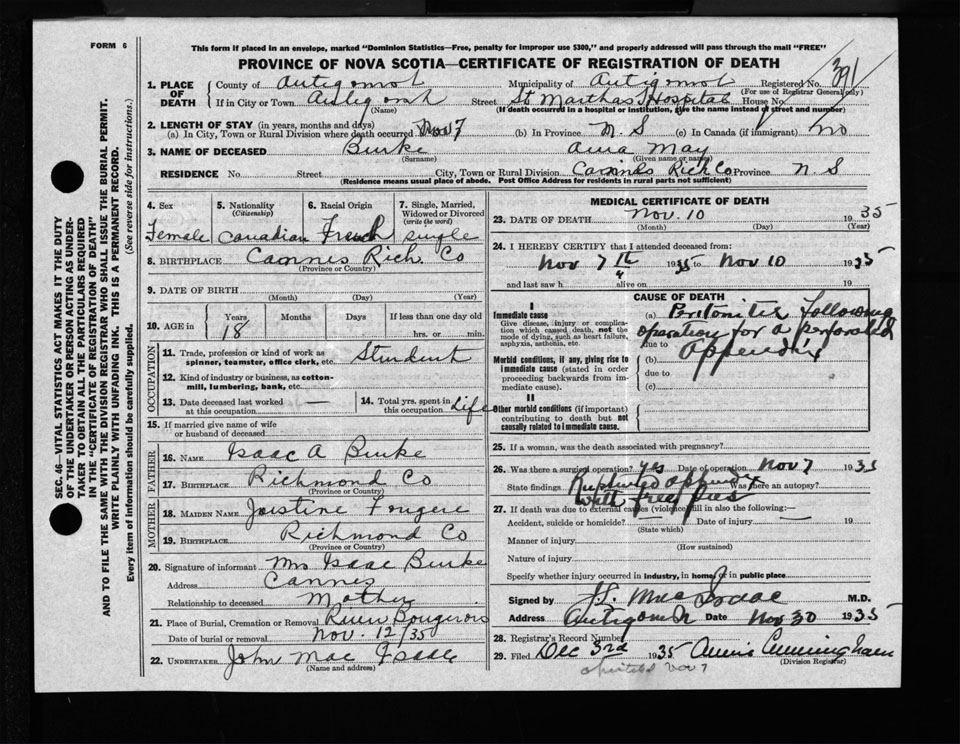 FORM 6
This form if placed in an envelope, marked "Dominion Statistics—Free, penalty for improper use $300," and properly addressed will pass through the mail "FREE"
PROVINCE OF NOVA SCOTIA—CERTIFICATE OF REGISTRATION OF DEATH
391
1. PLACE OF DEATH
County of Antigonish Municipality of Antigonish Registered No.
(For use of Registrar General only)
If in City or Town Antigonish Street St Marthas Hospital House No.
(Name) (If death occurred in a hospital or institution, give the name instead of street and number)
2. LENGTH OF STAY (in years, months and days)
(a) In City, Town or Rural Division where death occurred Nov 7 (b) In Province N. S (c) In Canada (if immigrant) No
3. NAME OF DECEASED Burke Anna May
(Surname) (Given name or names)
RESIDENCE No. Street City, Town or Rural Division Rich Co Province N. S
(Residence means usual place of abode. Post Office Address for residents in rural parts not sufficient)
4. Sex
Female
5. Nationality
(Citizenship)
Canadian
6. Racial Origin
French
7. Single, Married, Widowed or Divorced
(write the word)
single
8. BIRTHPLACE Cannes Rich. Co
(Province or Country)
9. DATE OF BIRTH
(Month) (Day) (Year)
10. AGE in
Years Months Days If less than one day old
18
hrs. or min.
OCCUPATION
11. Trade, profession or kind of work as spinner, teamster, office clerk, etc. Student
12. Kind of industry or business, as cotton-mill, lumbering, bank, etc.
13. Date deceased last worked at this occupation —
14. Total yrs. spent in this occupation Life
15. If married give name of wife or husband of deceased
FATHER
16. NAME Isaac A Burke
17. BIRTHPLACE Richmond Co
(Province or Country)
MOTHER
18. MAIDEN NAME Justine Fougere
19. BIRTHPLACE Richmond Co
(Province or Country)
20. Signature of informant Mrs Isaac Burke
Address Cannes
Relationship to deceased Mother
21. Place of Burial, Cremation or Removal River Bourgeois
Date of burial or removal Nov. 12/35
22. UNDERTAKER John Mac Isaac
(Name and address)
MEDICAL CERTIFICATE OF DEATH
23. DATE OF DEATH Nov. 10 1935
(Month) (Day) (Year)
24. I HEREBY CERTIFY that I attended deceased from:
Nov 7th 1935 to Nov 10 1935
and last saw h alive on 19
CAUSE OF DEATH
I
Immediate cause
Give disease, injury or complication which caused death, not the mode of dying, such as heart failure, asphyxia, asthenia, etc.
Morbid conditions, if any, giving rise to immediate cause (stated in order proceeding backwards from immediate cause).
II
Other morbid conditions (if important) contributing to death but not causally related to immediate cause.
(a) Peritonitis following
operation for a perforated
due to
Appendix
(b)
due to
(c)
25. If a woman, was the death associated with pregnancy?
26. Was there a surgical operation? yes Date of operation Nov 7 1935
State findings Ruptured appendix Was there an autopsy?
with free pus
27. If death was due to external causes (violence) fill in also the following:—
Accident, suicide or homicide? Date of injury — 19
(State which)
Manner of injury
(How sustained)
Nature of injury
Specify whether injury occurred in industry, in home, or in public place
Signed by Mac Isaac M.D.
Address Antigonish Date Nov 30 1935
28. Registrar's Record Number
29. Filed Dec 3rd 1935 Annie Cunningham
(Division Registrar)
Nov 7
SEC. 46—VITAL STATISTICS ACT MAKES IT THE DUTY OF THE UNDERTAKER OR PERSON ACTING AS UNDERTAKER TO OBTAIN ALL THE PARTICULARS REQUIRED IN THE "CERTIFICATE OF REGISTRATION OF DEATH"
AND TO FILE THE SAME WITH THE DIVISION REGISTRAR WHO SHALL ISSUE THE BURIAL PERMIT.
WRITE PLAINLY WITH UNFADING INK. THIS IS A PERMANENT RECORD.
Every item of information should be carefully supplied. (See reverse side for instructions.)